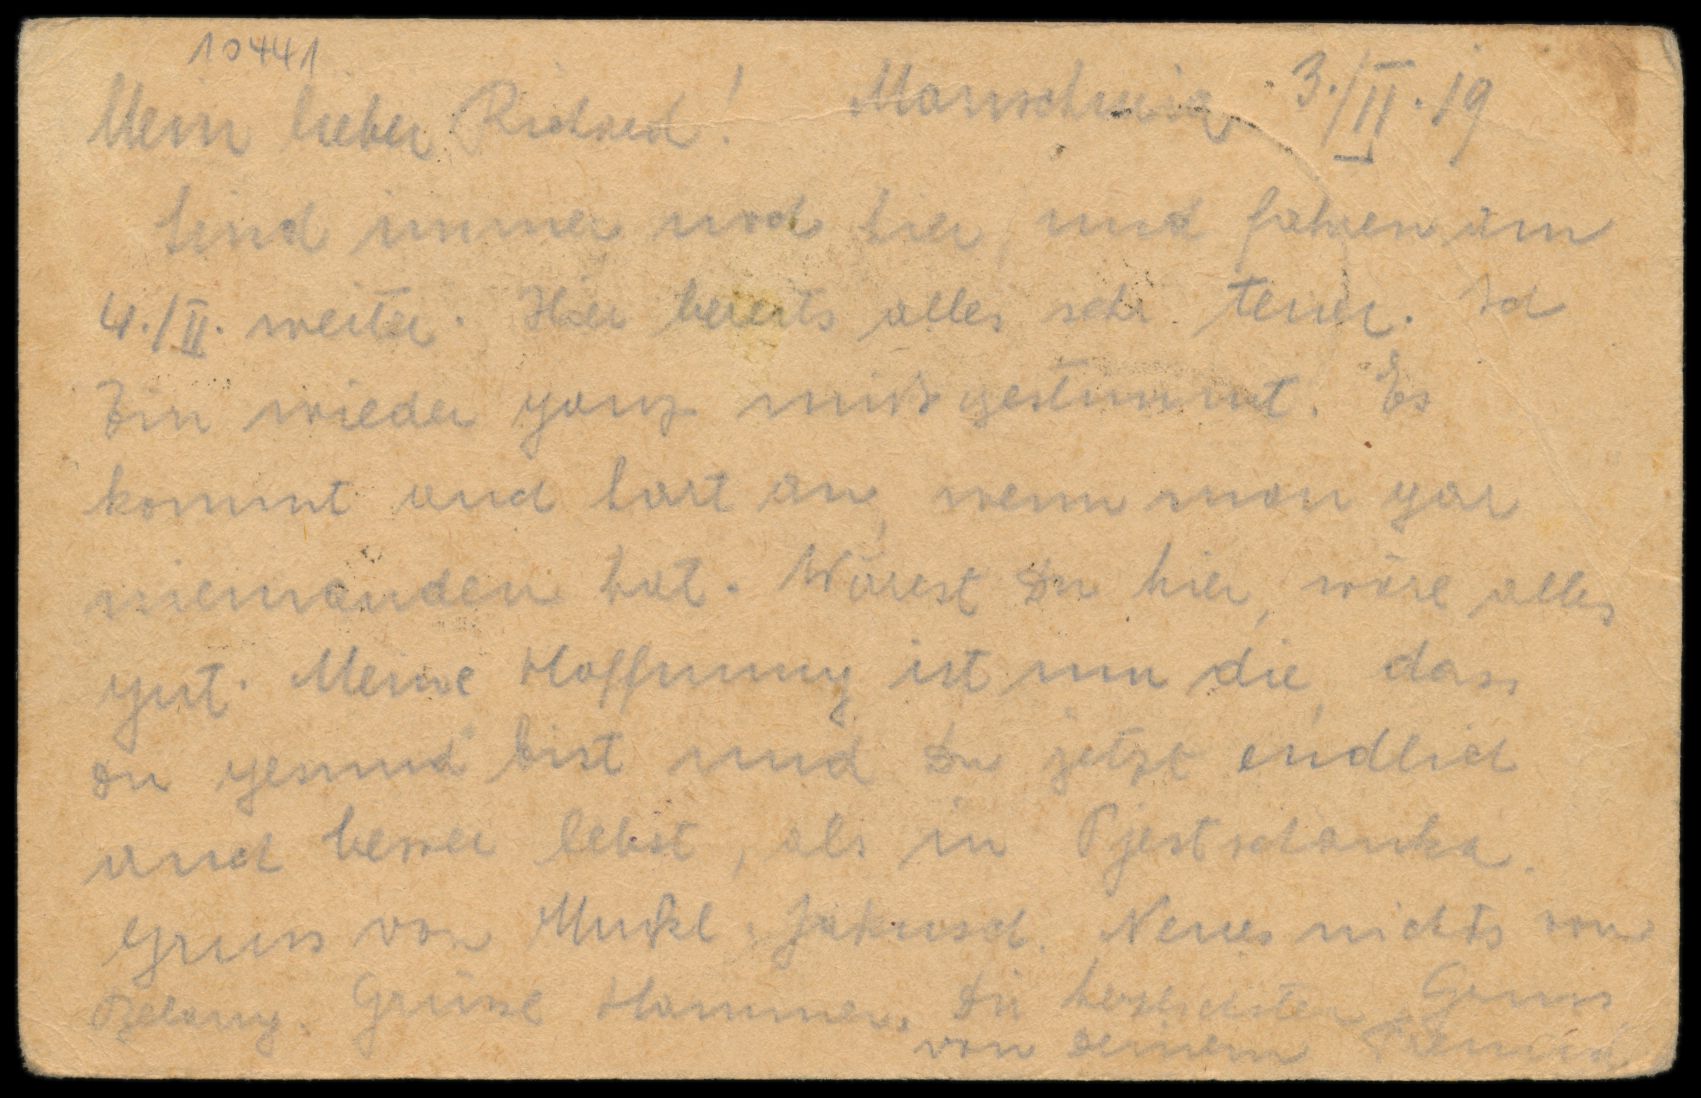 10441
Mein lieber Richard! 3./II.19
Sind immer noch hier, und fahren am
4./II. weiter. Hier bereits alles sehr teuer. Ich
bin wieder ganz mißgestimmt. Es
kommt auch hart an, wenn man gar
niemanden hat. Wärest Du hier, wäre alles
gut. Meine Hoffnung ist nun die, dass
Du gesund bist und Du jetzt endlich
auch besser lebst, als in Pjestschanka.
Gruss von Jakwosch. Neues nichts von
Belang. Grüsse Hammer. Die herzlichsten Gruss
von Deinem